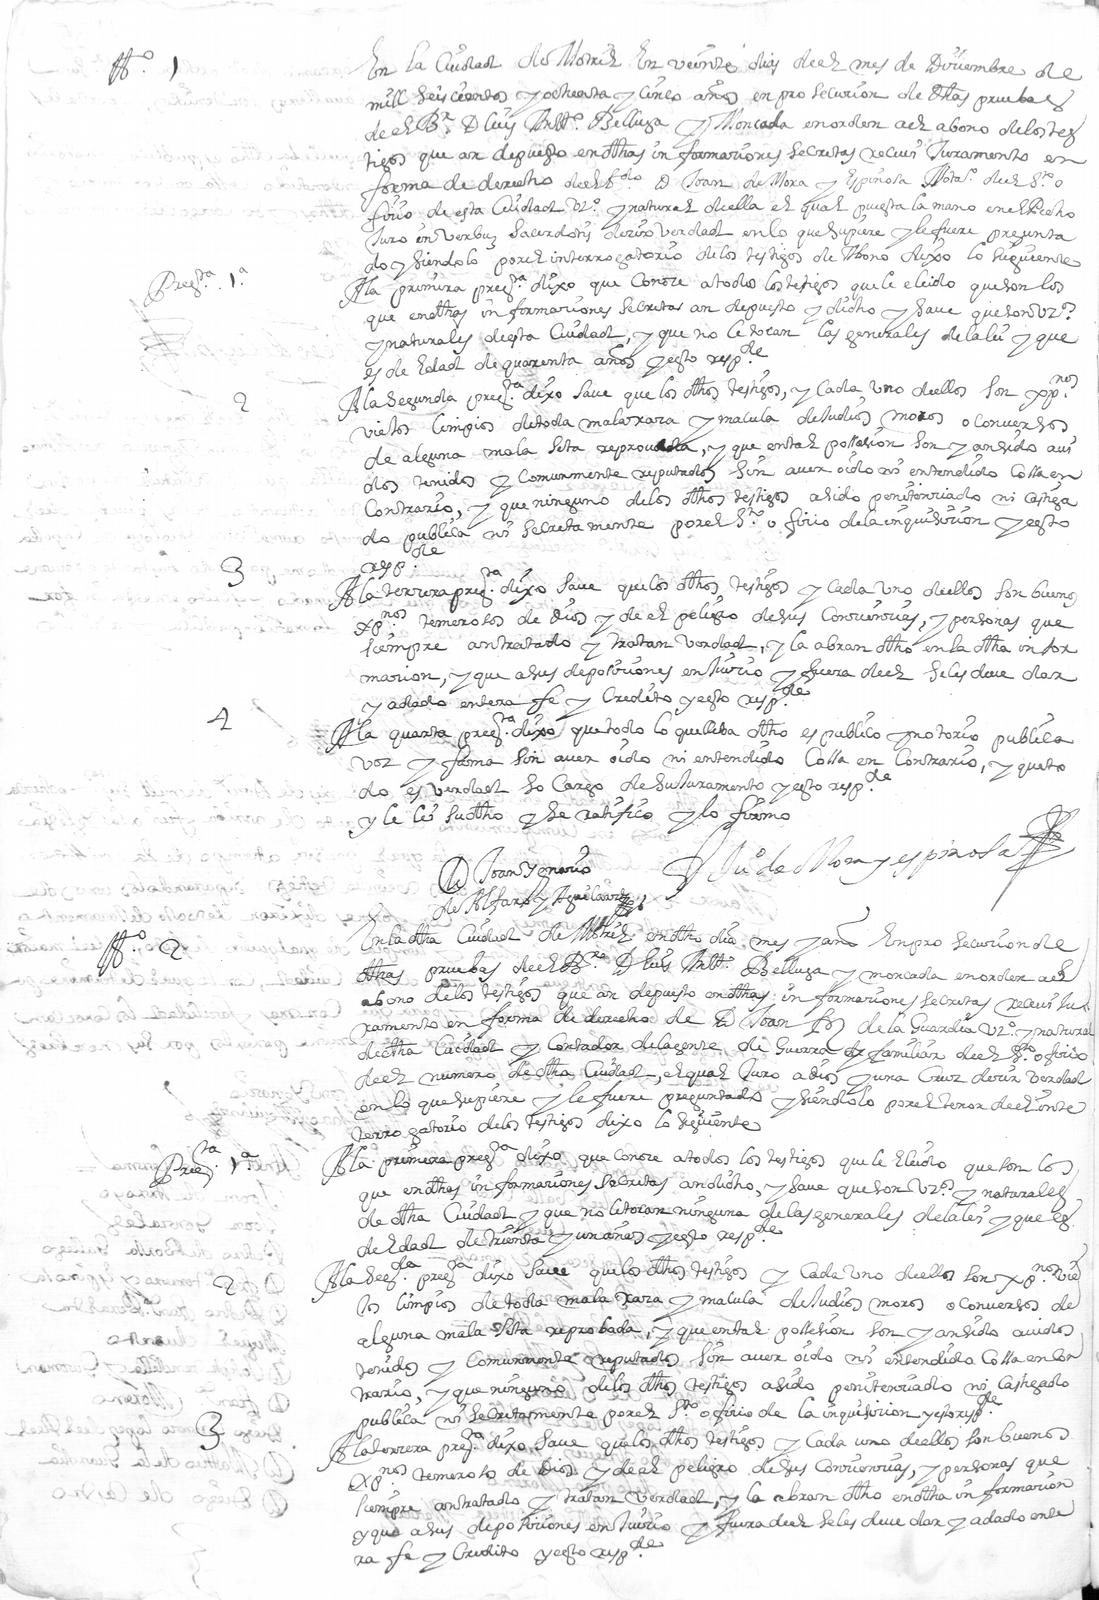 tt.º 1
En la Ciudad de Motril En veinte dias deel mes de Diciembre de
mill seis cientos y ochenta y cinco años en prosecucion de dhas pruebas
de el Br. D luis Antt.º Belluga y Moncada en orden ael abono de los tes
tigos que an depuesto en dhas informaciones secretas recivi Juramento en
forma de derecho deel D Joan de Mora y Espinosa Nota.º deel S.to o
ficio de esta Ciudad vz.º y natural deella el qual puesta la mano en el Pecho
Juro in verbis sacerdotis decir verdad en lo que supiere y le fuere pregunta
do y siendolo por el interrogatorio de los testigos de Abono dixo lo siguiente
Preg.ta 1.ª
A la primera preg.ta dixo que Conoce a todos los testigos que le e leido que son los
que en dhas informaciones secretas an depuesto y dicho y save que son vz.os
y naturales desta Ciudad, y que no le tocan las generales de la lei y que
es de Edad de quarenta años y esto resp.de
2
A la segunda preg.ta dixo save que los dhos testigos, y Cada uno de ellos son xp.nos
viejos limpios de toda mala raza y macula de Judios moros o conversos
de alguna mala seta reprovada, y que en tal possesion son y an sido avi
dos tenidos y Comunmente reputados sin aver oido ni entendido Cossa en
Contrario, y que ninguno de los dhos testigos a sido penitenciado ni castiga
do publica ni secretamente por el S.to oficio de la inquisicion y esto
resp.de
3
A la tercera preg.ta dixo save que los dhos testigos y Cada uno de ellos son buenos
xp.nos temerosos de Dios y de el peligro de sus Conciencias, y personas que
siempre an tratado y tratan verdad, y la abran dho en la dha infor
macion, y que a sus deposiciones en Juicio y fuera deel se les deve dar
y a dado entera fe y Credito y esto resp.de
4
A la quarta preg.ta dixo que todo lo que lleba dho es publico y notorio publica
voz y fama sin aver oido ni entendido Cossa en Contrario, y que to
do es verdad so Cargo de su Juramento y esto resp.de
y le lei su dho y se ratifico y lo firmo
D Ju.º de Mora y espinosa
D Joan
de Alfaro y Aguilar
tt.º 2
En la dha Ciudad de Motril en dho dia mes y año En prosecucion de
dhas pruebas deel B.r D luis Antt.º Belluga y moncada en orden ael
abono de los testigos que an depuesto en dhas informaciones secretas recivi Ju
ramento en forma de derecho de D Joan de la Guardia vz.º y natural
de dha Ciudad y Contador de la gente de Guerra familiar deel S.to oficio
deel numero de dha Ciudad, el qual Juro a dios y una Cruz decir verdad
en lo que supiere y le fuere preguntado y siendolo por el tenor deel inte
rrogatorio de los testigos dixo lo siguiente
Preg.ta 1ª
A la primera preg.ta dixo que Conoce a todos los testigos que le e leido que son los
que en dhas informaciones secretas an dicho, y save que son vz.os y naturales
de dha Ciudad y que no le tocan ninguna de las generales de la lei y que es
de Edad de treinta y un años y esto resp.de
2
A la seg.da preg.ta dixo save que los dhos testigos y Cada uno de ellos son xp.nos vie
jos limpios de toda mala raza y macula de Judios moros o conversos de
alguna mala seta reprobada, y que en tal possesion son y an sido avidos
tenidos y Comunmente reputados sin aver oido ni entendido Cossa en Con
trario, y que ninguno de los dhos testigos a sido penitenciado ni castigado
publica ni secretamente por el S.to oficio de la inquisicion y esto resp.de
3
A la tercera preg.ta dixo save que los dhos testigos y Cada uno de ellos son buenos
xp.nos temerosos de Dios y de el peligro de sus Conciencias, y personas que
siempre an tratado y tratan verdad, y la abran dho en dha informacion
y que a sus deposiciones en Juicio y fuera deel se les deve dar y a dado ente
ra fe y Credito y esto resp.de